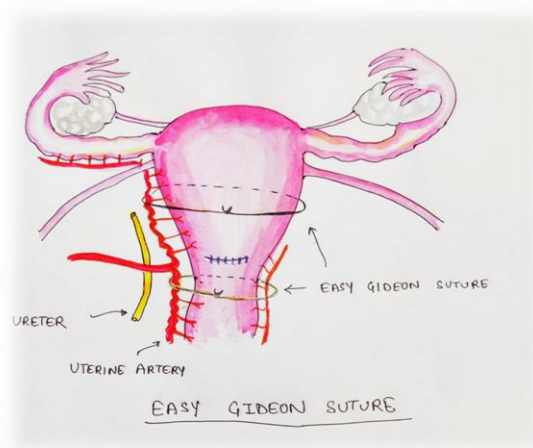 EASY GIDEON SUTURE
URETER
UTERINE ARTERY
EASY GIDEON SUTURE